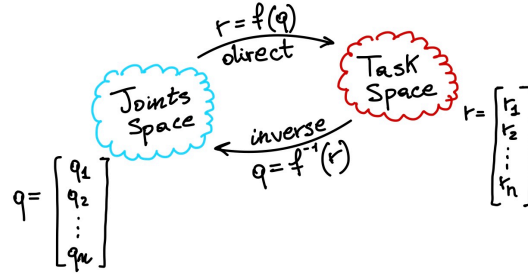 r = f(q)
direct
Joints
Space
Task
Space
inverse
q = f⁻¹(r)
r = [r₁
r₂
⋮
rₙ]
q = [q₁
q₂
⋮
qₙ]